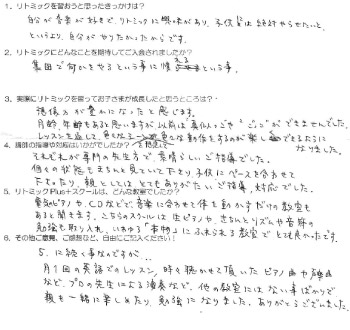 1. リトミックを習おうと思ったきっかけは？
自分が音楽が好きで、リトミックに興味があり、子供には絶対やらせたいと、
というより、自分がやりたかったからです。
2. リトミックにどんなことを期待してご入会されましたか？
集団で何かをやるという事に慣れるという事。
3. 実際にリトミックを習ってお子さまが成長したと思うところは？・
表情が豊かになったと感じます。
月齢、年齢もあると思いますが以前は"真似っこ"や"ごっこ"ができませんでした。
レッスンを通して、色々な動作をするのが楽しくできるように
なりました。
4. 講師の指導や対応はいかがでしたか？
それぞれが専門の先生方で、素晴らしいご指導でした。
個々の状態もきちんと見ていて下さり、子供にペースを合わせて
下さったり、親としてはとてもありがたいご指導、対応でした。
5. リトミックPlusナスクールは、どんな教室でしたか？
電気ピアノや、CDなどで音楽に合わせて体を動かすだけの教室も
あると聞きます。こちらのスクールは生ピアノや、きちんとリズムや音符の
勉強も取り入れ、いわゆる"本物"にふれられる教室でとても良かったです。
6. その他ご意見、ご感想など、自由にご記入ください！
5.に続く事なのですが…
月1回の英語でのレッスン、時々聴かせて頂いたピアノ曲や
など、プロの先生による演奏など、他の教室にはない事ばかりで
親も一緒に楽しめたり、勉強になりました。ありがとうございました。